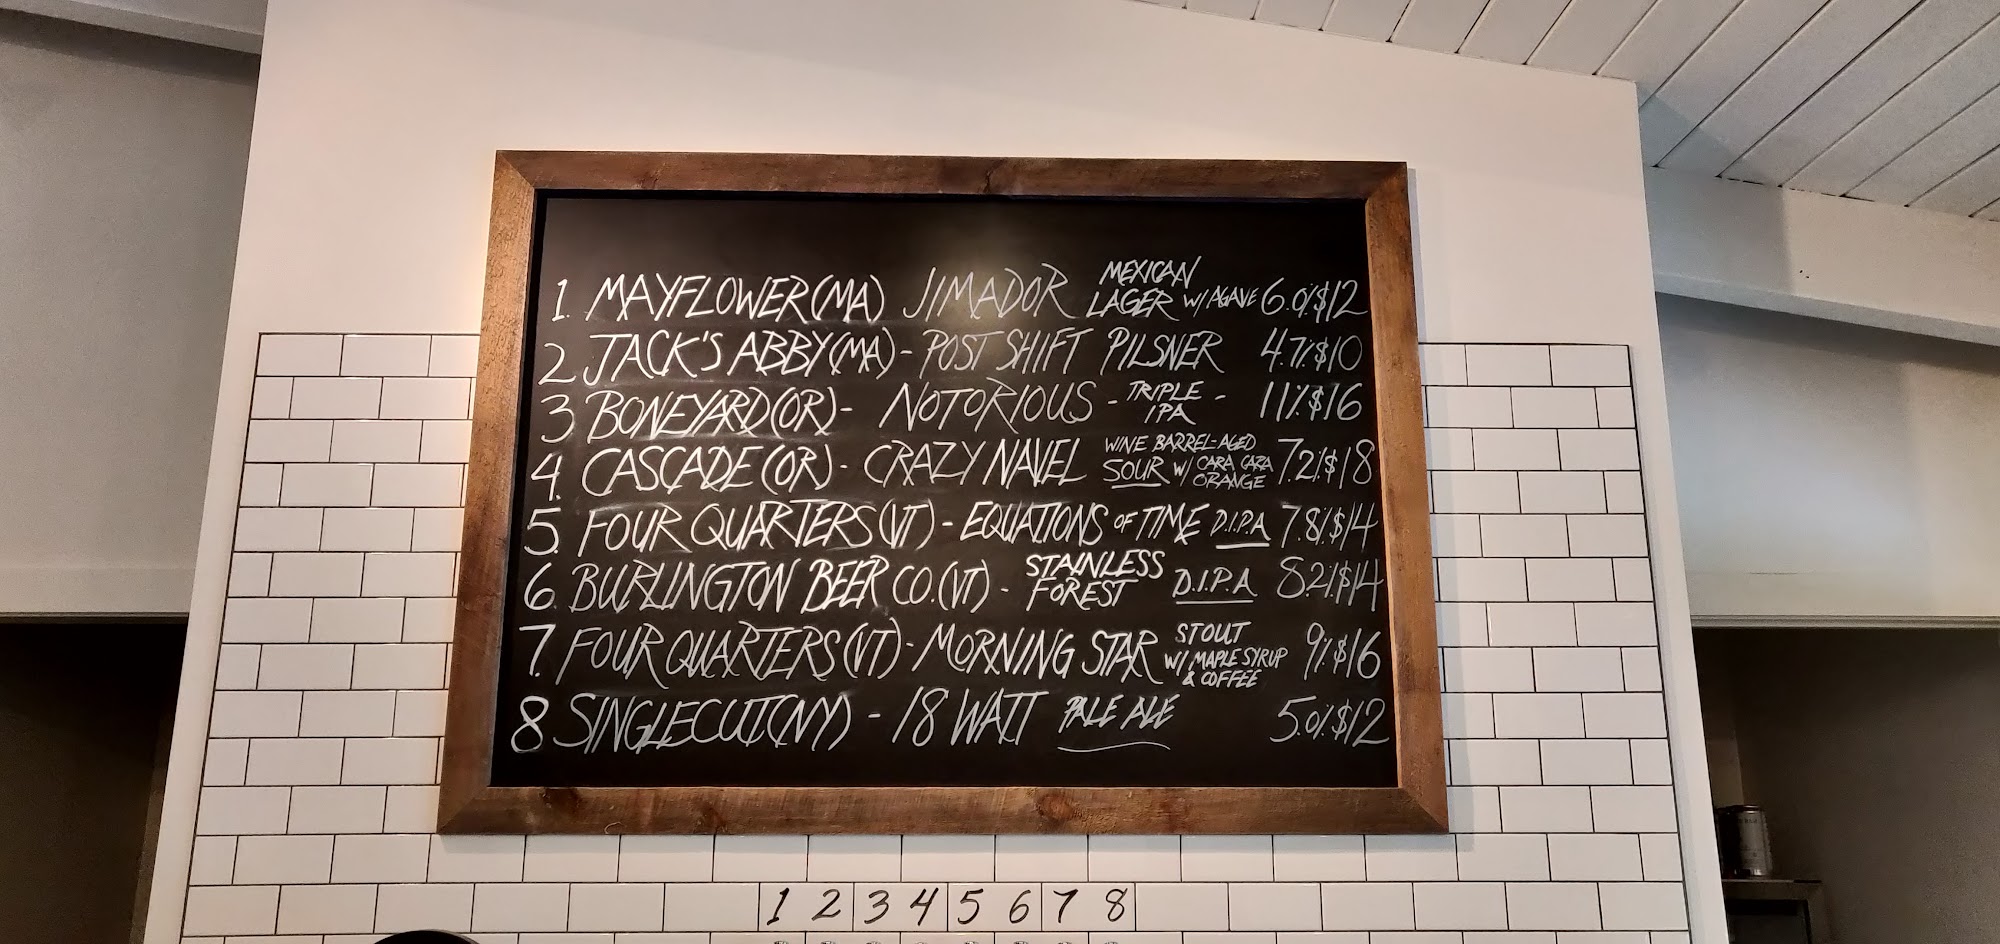 1. MAYFLOWER (MA) JIMADOR MEXICAN LAGER W/ AGAVE 6.0% $12
2 JACK'S ABBY (MA) - POST SHIFT PILSNER 4.7% $10
3 BONEYARD (OR) - NOTORIOUS - TRIPLE IPA - 11% $16
4. CASCADE (OR) - CRAZY NAVEL WINE BARREL-AGED SOUR W/ CARA CARA ORANGE 7.2% $18
5. FOUR QUARTERS (VT) - EQUATIONS OF TIME D.I.P.A 7.8% $14
6. BURLINGTON BEER CO. (VT) - STAINLESS FOREST D.I.P.A 8.2% $14
7. FOUR QUARTERS (VT) - MORNING STAR STOUT W/ MAPLE SYRUP & COFFEE 9% $16
8 SINGLECUT (NY) - 18 WATT PALE ALE 5.0% $12
1 2 3 4 5 6 7 8